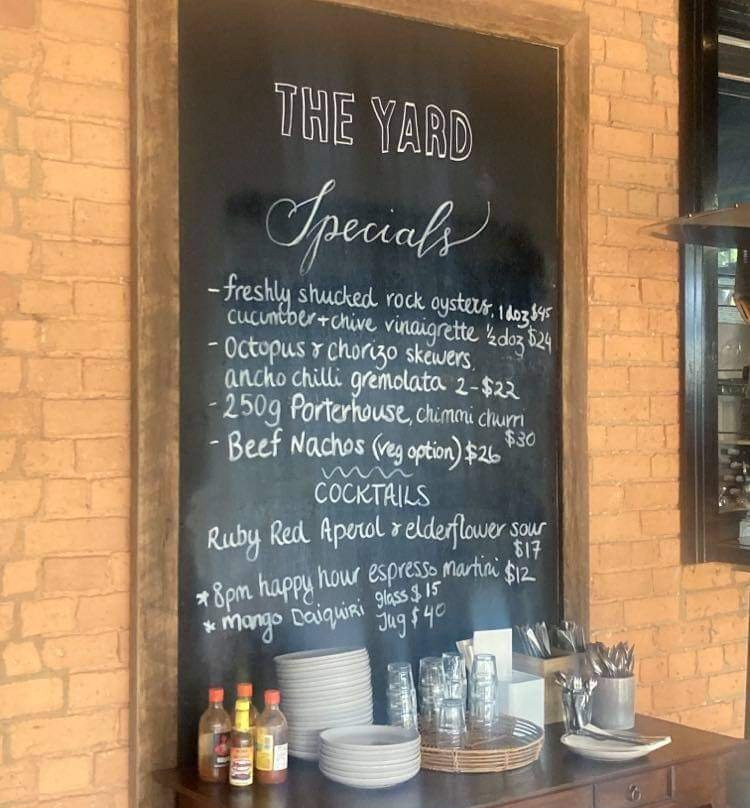 THE YARD
Specials
- freshly shucked rock oysters, 1 doz $45
cucumber + chive vinaigrette ½ doz $24
- Octopus & chorizo skewers,
ancho chilli gremolata 2 - $22
- 250g Porterhouse, chimmi churri
$30
- Beef Nachos (veg option) $26
COCKTAILS
Ruby Red Aperol & elderflower sour
$17
* 8pm happy hour espresso martini $12
* mango Daiquiri glass $15
Jug $40